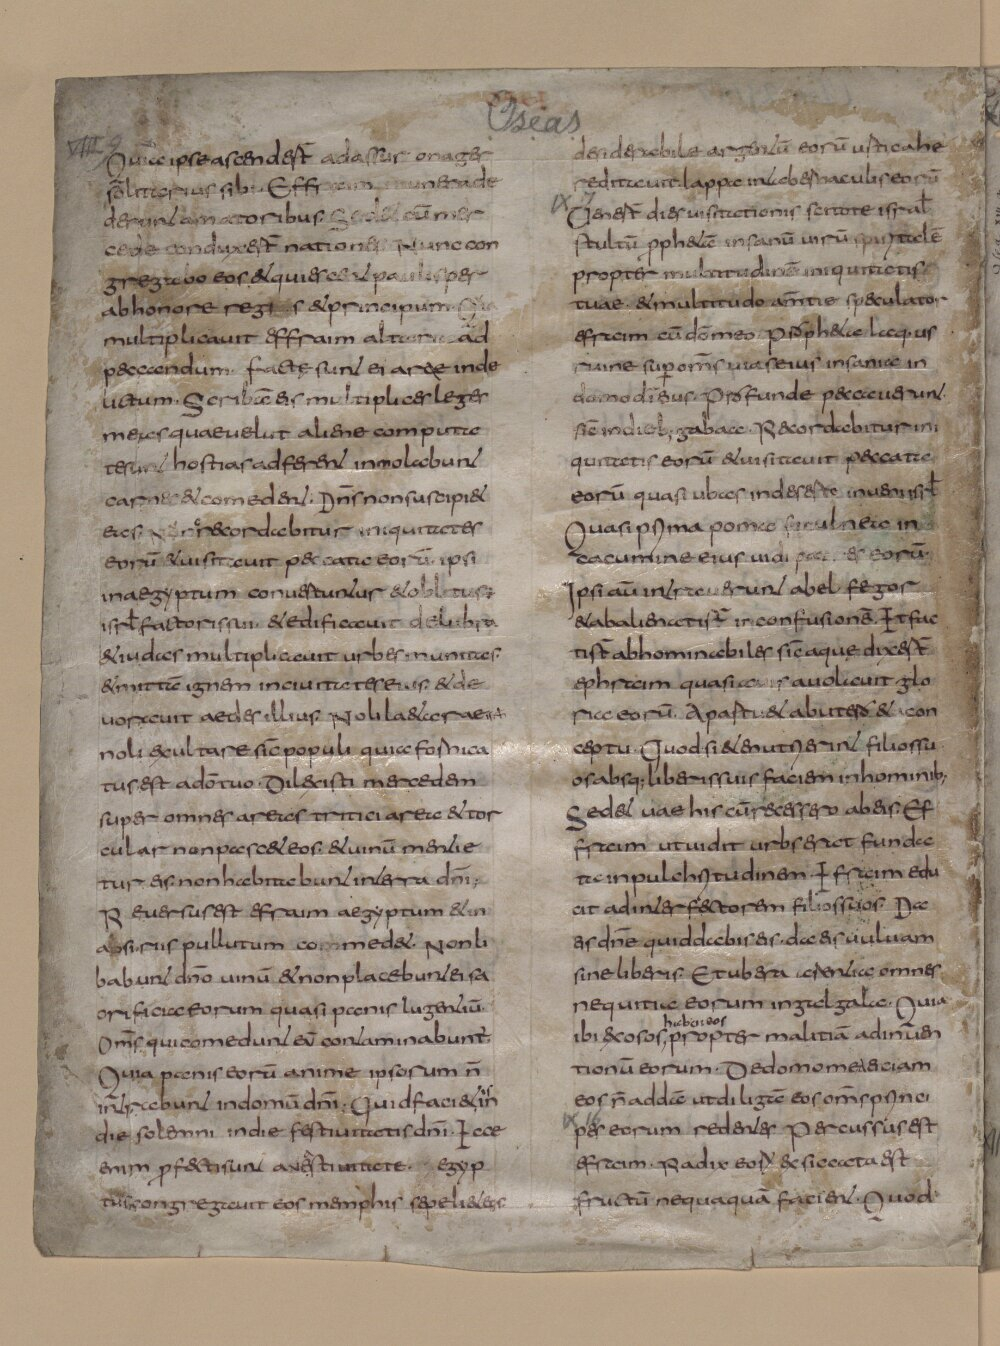 Oseas
VIII 9
Quia ipse ascendest ad assur onager
solitarius sibi. Effraim munera de
derunt amatoribus. Sed et cũ mer
cede conduxest nationes. Nunc con
gregabo eos et quiescent paulisper
ab honore regis et principum. Quia
multiplicavit effraim altaria ad
peccandum. factę sunt ei arae inde
lictum. Scribã eis multiplices leges
meas quae velut aliene computa
te sunt hostias adferent inmolabunt
carnes et comedent. Dñs non suscipiet
eas. Nunc recordabitur iniquitates
eorũ et visitavit peccata eorũ. ipsi
in aegyptum convertuntur et oblitus
isrl factoris sui. et edificavit delubra
et iudas multiplicavit urbes munitas
et mittã ignem in civitates eius. et de
voravit aedes illius. Noli laetare
noli exultare sic populi quia fornica
tus est a dõ tuo. Dilexisti mercedem
super omnes areas tritici area et tor
cular non pascet eos. et vinũ menti e
tur eis. non habitabunt in terra dñi;
Reversus est effraim aegyptum et in
absiriis pullutum commedet. Non li
babunt dño vinũ et non placebunt ei sa
orificia eorum quasi panis lugentiũ.
Omš. qui comedunt eũ contaminabunt
Quia panis eorũ anime ipsorum ñ
intrabunt in domũ dñi. Quid facietis in
die solemni in die festivitatis dñi. Ecce
enim profecti sunt a vastitate. egyp
tus congregavit eos memphis sepeliet eos
desiderabile argentũ eorũ urtica he
reditavit lappa in tabernaculis eorũ
IX 7
Venest dies visitationis scitote israhl
stultũ prophetã insanũ virũ spiritalẽ
propter multitudinẽ iniquitatis
tuae. et multitudo amtie speculator
efraim cũ dõ meo. Propheta laqueus
ruine sup omš vias eius insania in
domo di eius. Profunde peccaverunt.
sic in dieb; gabaa. Recordabitur ini
quitatis eorũ et visitavit peccata
eorũ quasi ubas in deserto inveni isrl
Quasi prima poma ficulnea in
cacumine eius vidi patres eorũ.
Ipsi aũ intraverunt abel fegor
et abalienatist in confusionẽ. Et fac
tist abhominabiles sic ea que dixest
ephraim quasi avis avolavit glo
ria eorũ. A partu et ab utero et a con
ceptu. Quod si et enutrierint filios su
os absq; liberis suis faciem in hominib;
Sed et vae his cũ recessero ab eis. Ef
fraim ut vidit urbs erat funda
ta in pulchritudinem. Efraim edu
cit ad interfectorem filios suos. Da
eis dñe quid dabis eis. da eis vulvam
sine liberis. Et ubera arentia omnes
nequitiae eorum in galgala. Quia
ibi exosos, propter malitiã adinuen
habeo eos
tionũ eorum. De domo mea eiciam
eos ñ addã ut diligã eos omš princi
IX 16
pes eorum redentes Percussus est
efraim. Radix eorũ exsiccata est
fructũ nequaquã facient. Quod